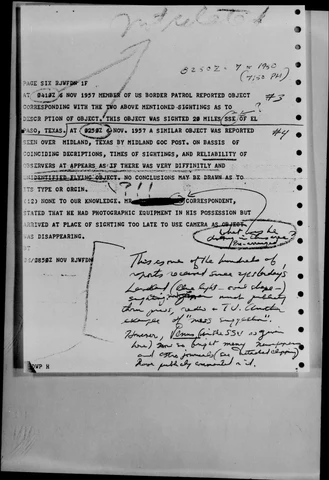 unrelated
0250Z - 7 
(7:50 PM)
PAGE SIX RJWFDW 1F
AT 0410Z 6 NOV 1957 MEMBER OF US BORDER PATROL REPORTED OBJECT #3
CORRESPONDING WITH THE TWO ABOVE MENTIONED SIGHTINGS AS TO
DESCRPTION OF OBJECT. THIS OBJECT WAS SIGHTED 20 MILES SSE OF EL ?
PASO, TEXAS. AT 0250Z 6 NOV. 1957 A SIMILAR OBJECT WAS REPORTED #4
SEEN OVER MIDLAND, TEXAS BY MIDLAND GOC POST. ON BASSIS OF
COINCIDING DECRIPTIONS, TIMES OF SIGHTINGS, AND RELIABILITY OF
OBSERVERS AT APPEARS AS IF THERE WAS VERY DIFFINITLY AND
UNIDENTIFIED FLYING OBJECT. NO CONCLUSIONS MAY BE DRAWN AS TO
ITS TYPE OR ORGIN. ? !!
(12) NONE TO OUR KNOWLEDGE. MR CORRESPONDENT,
STATED THAT HE HAD PHOTOGRAPHIC EQUIPMENT IN HIS POSSESSION BUT
ARRIVED AT PLACE OF SIGHTING TOO LATE TO USE CAMERA AS OBJECT
WAS DISAPPEARING.
What was he
doing in this area?
BT
NOV RJWFDW
This is one of the hundreds of
reports received since yesterday's
Levelland
sightings much publicity
thru press, radio & TV. Another
example of "mass suggestion".
However, Venus (in the SSW as given
here) now so bright many newspapers
and other journals (see attached clipping)
have publicly commented on it.